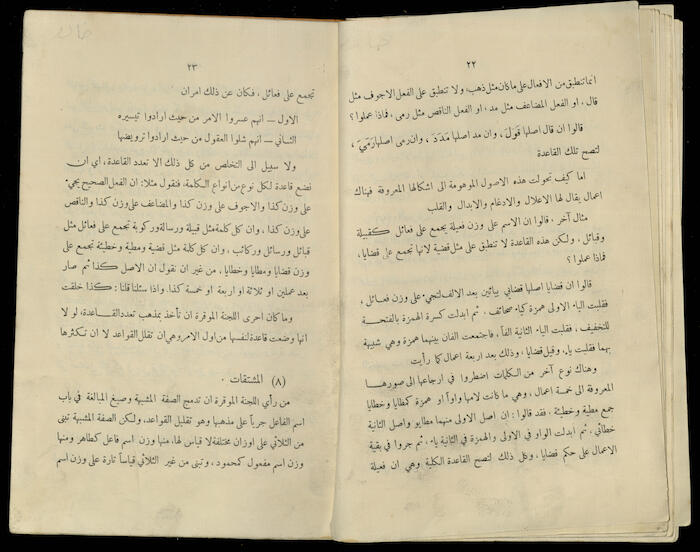 ٢٢
انما تنطبق من الافعال على ما كان مثل ذهب؛ ولا تنطبق على الفعل الاجوف مثل
قال، او الفعل المضاعف مثل مد، او الفعل الناقص مثل رمى، فماذا عملوا؟
قالوا ان قال اصلها قَوَلَ، وان مد اصلها مَدَدَ، وان رمى اصلها رَمَيَ،
لتصح تلك القاعدة
اما كيف تحولت هذه الاصول الموهومة الى اشكالها المعروفة فهناك
اعمال يقال لها الاعلال والادغام والابدال والقلب
مثال آخر. قالوا ان الاسم على وزن فعيلة يجمع على فعائل كقبيلة
وقبائل، ولكن هذه القاعدة لا تنطبق على مثل قضية لانها تجمع على قضايا،
فماذا عملوا؟
قالوا ان قضايا اصلها قضايي بيائين بعد الالف لتجيء على وزن فعائل،
فقلبت الياء الاولى همزة كياء صحائف. ثم ابدلت كسرة الهمزة بالفتحة
للتخفيف، فقلبت الياء الثانية الفاً، فاجتمعت الفان بينهما همزة وهي شبيهة
بهما فقلبت ياء. وقيل قضايا، وذلك بعد اربعة اعمال كما رأيت
وهناك نوع آخر من الكلمات اضطروا في ارجاعها الى صورها
المعروفة الى خمسة اعمال، وهي ما كانت لامها واواً او همزة كمطايا وخطايا
جمع مطية وخطيئة. فقد قالوا: ان اصل الاولى منهما مطايو واصل الثانية
خطائي، ثم ابدلت الواو في الاولى والهمزة في الثانية ياء. ثم جروا في بقية
الاعمال على حكم قضايا، وكل ذلك لتصح القاعدة الكلية وهي ان فعيلة
٢٣
تجمع على فعائل، فكان عن ذلك امران
الاول — انهم عسروا الامر من حيث ارادوا تيسيره
الثاني — انهم شلوا العقول من حيث ارادوا ترويضها
ولا سبيل الى التخلص من كل ذلك الا تعدد القاعدة، اي ان
نضع قاعدة لكل نوع من انواع الكلمة، فنقول مثلا: ان الفعل الصحيح يجيء
على وزن كذا والاجوف على وزن كذا والمضاعف على وزن كذا والناقص
على وزن كذا، وان كل كلمة مثل قبيلة ورسالة وركوبة تجمع على فعائل مثل
قبائل ورسائل وركائب، وان كل كلمة مثل قضية ومطية وخطيئة تجمع على
وزن قضايا ومطايا وخطايا، من غير ان نقول ان الاصل كذا ثم صار
بعد عملين او ثلاثة او اربعة او خمسة كذا. واذا سئلنا قلنا: كذا خلقت
وما كان احرى اللجنة الموقرة ان تأخذ بمذهب تعدد القاعدة، لو لا
انها وضعت قاعدة لنفسها من اول الامر وهي ان تقلل القواعد لا ان تكثرها
(٨) المشتقات
من رأي اللجنة الموقرة ان تدمج الصفة المشبهة وصيغ المبالغة في باب
اسم الفاعل جرياً على مذهبها وهو تقليل القواعد، ولكن الصفة المشبهة تبنى
من الثلاثي على اوزان مختلفة لا قياس لها، منها وزن اسم فاعل كطاهر ومنها
وزن اسم مفعول كمحمود، وتبنى من غير الثلاثي قياساً تارة على وزن اسم